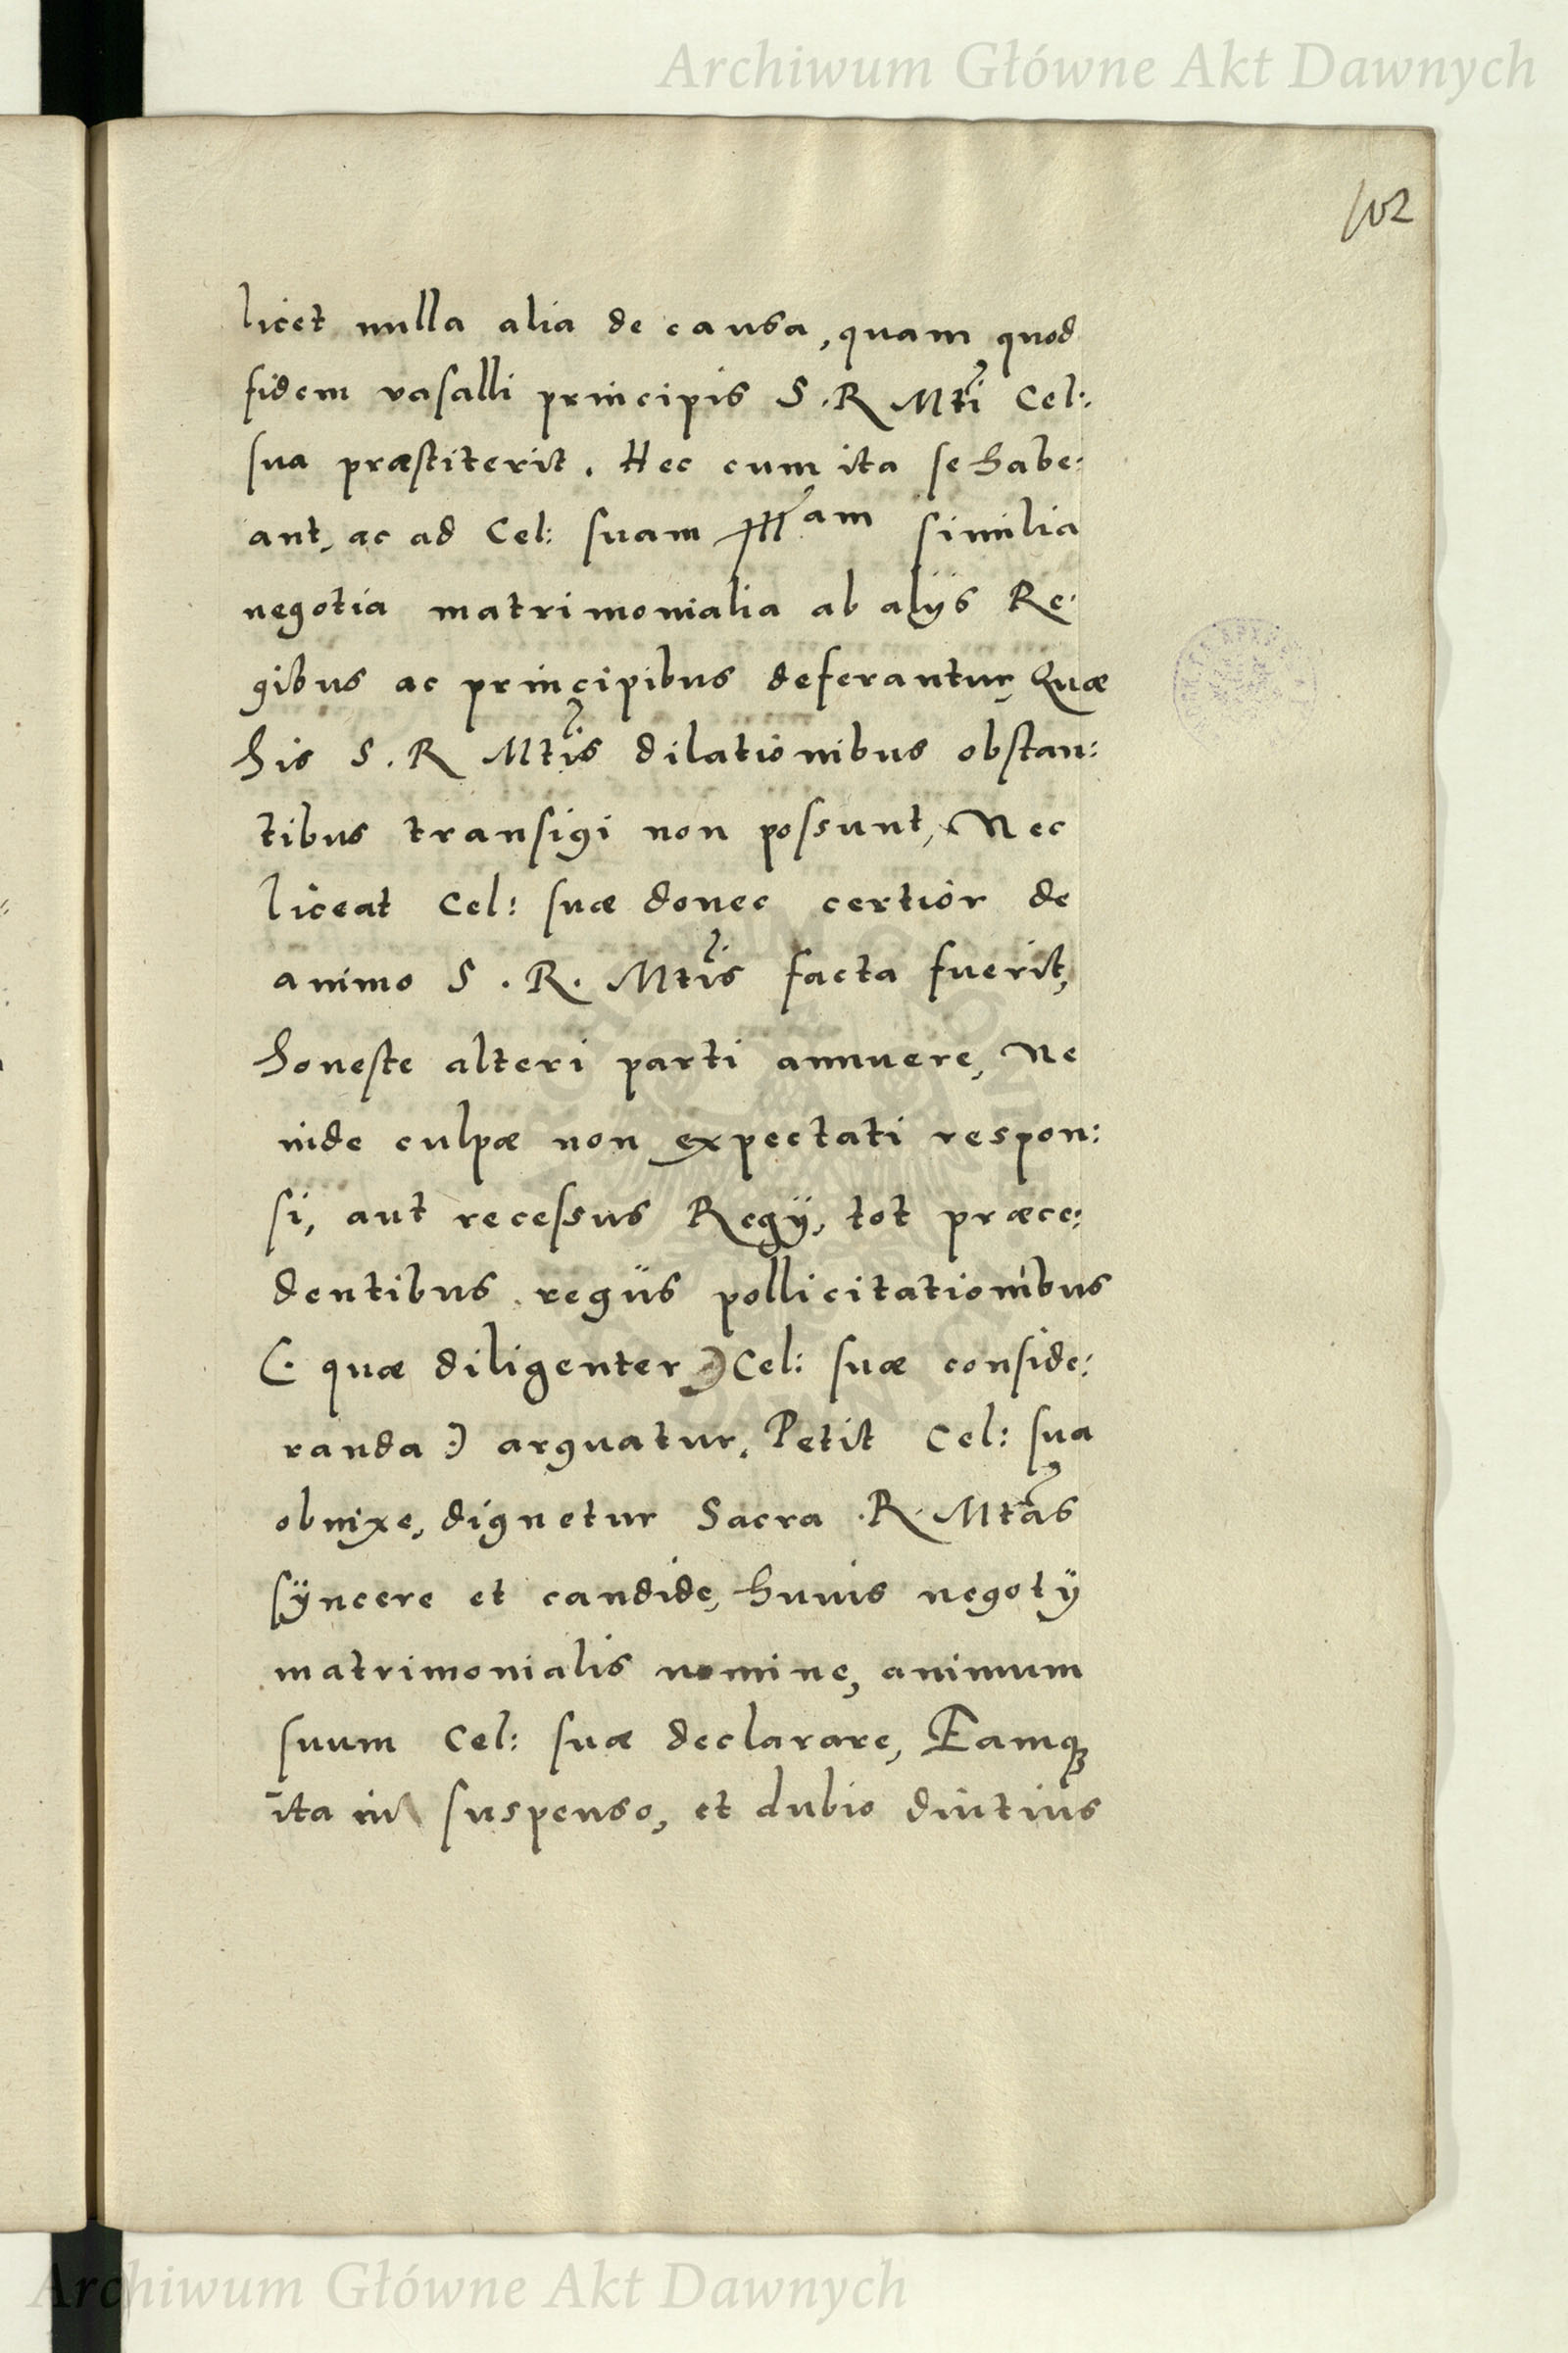 Archiwum Główne Akt Dawnych
102
licet nulla alia de causa, quam quod
fidem vasalli principis S. R Mti Cel:
sua præstiterit. Hec cum ita se habe:
ant, ac ad Cel: suam Illam similia
negotia matrimonialia ab alijs Re:
gibus ac principibus deferantur, Quæ
his S. R Mtis dilationibus obstan:
tibus transigi non possunt, Nec
liceat Cel: suæ donec certior de
animo S. R. Mtis facta fuerit,
honeste alteri parti annuere, Ne
inde culpæ non expectati respon:
si, aut recessus Regÿ, tot præce:
dentibus regiis pollicitationibus
(: quæ diligenter Cel: suæ conside:
randa :) arguatur. Petit Cel: sua
obnixe, dignetur Sacra R. Mtas
sÿncere et candide, huius negotÿ
matrimonialis nomine, animum
suum Cel: suæ declarare, Eamq;
ita in suspenso, et dubio diutius
Archiwum Główne Akt Dawnych